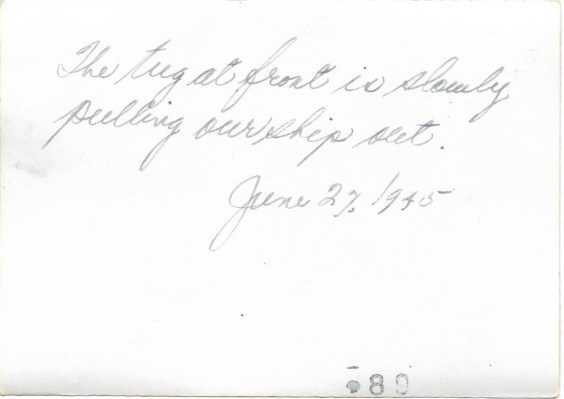 The tug at front is slowly
pulling our ship out.
June 27, 1945
89